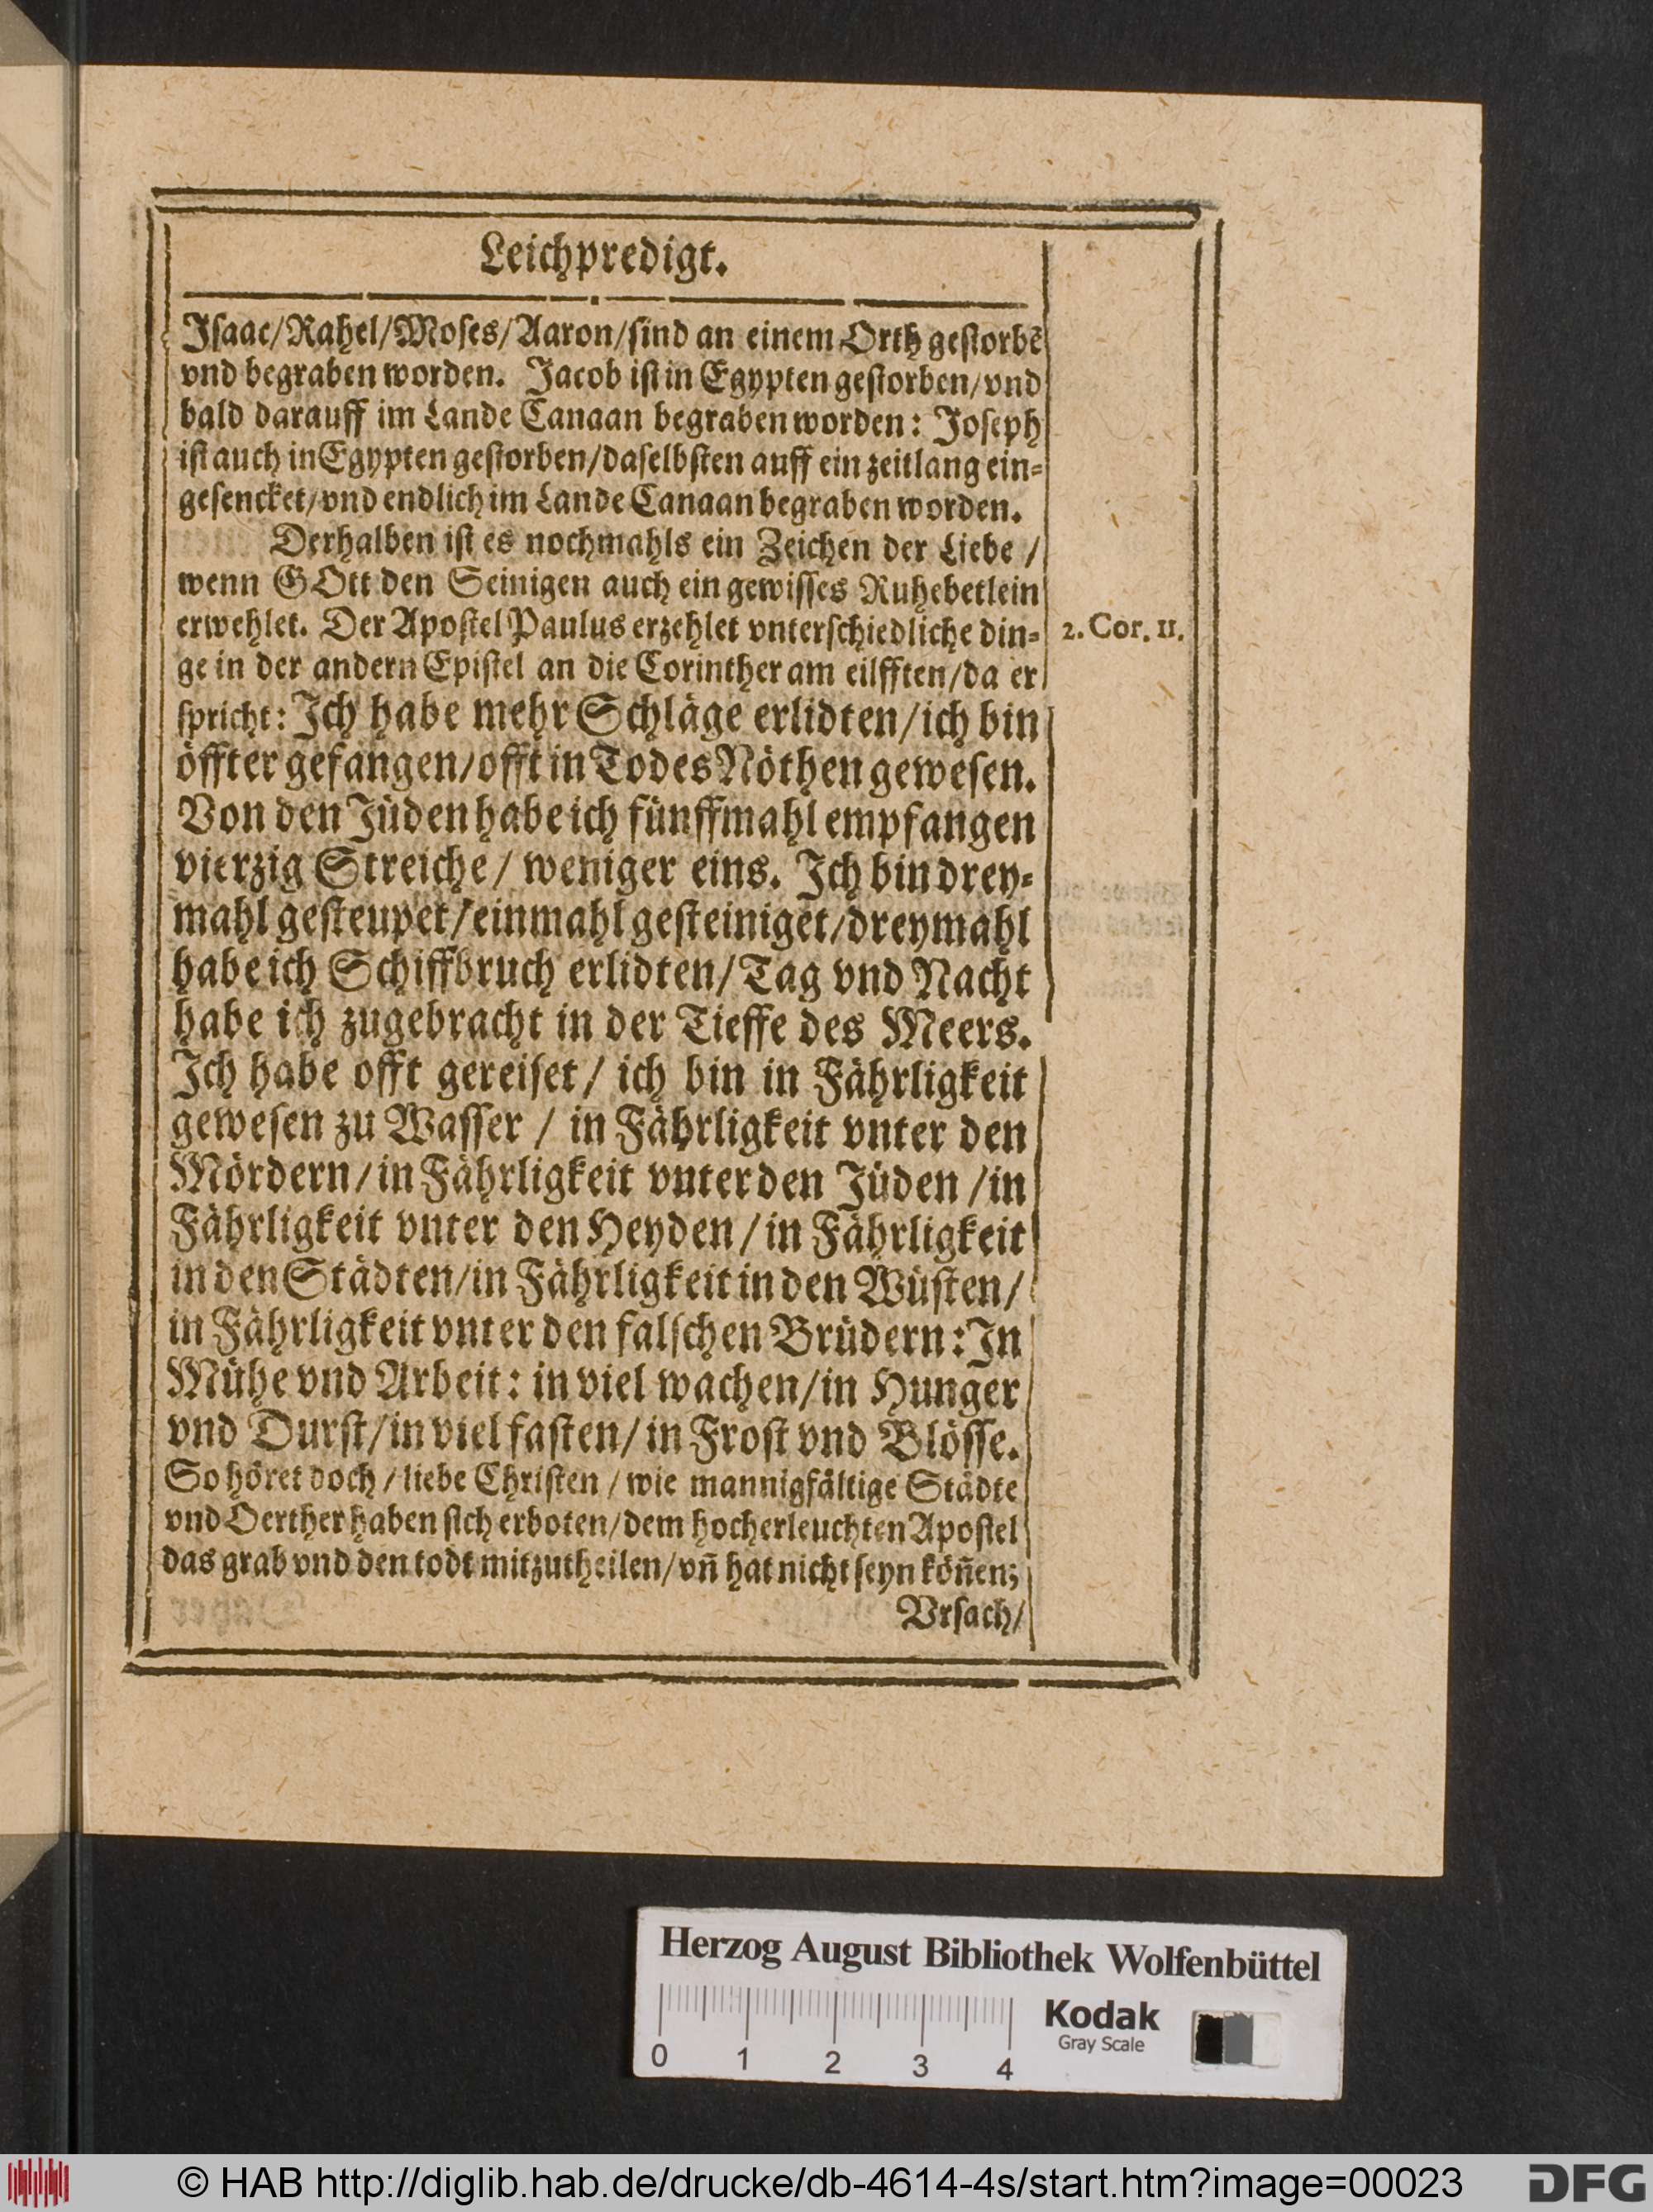 Leichpredigt.
Isaac/Rahel/Moses/Aaron/sind an einem Orth gestorbẽ
vnd begraben worden. Jacob ist in Egypten gestorben/vnd
bald darauff im Lande Canaan begraben worden: Joseph
ist auch in Egypten gestorben/daselbsten auff ein zeitlang ein-
gesencket/vnd endlich im Lande Canaan begraben worden.
Derhalben ist es nochmahls ein Zeichen der Liebe /
wenn GOtt den Seinigen auch ein gewisses Ruhebetlein
erwehlet. Der Apostel Paulus erzehlet vnterschiedliche din-
2. Cor. 11.
ge in der andern Epistel an die Corinther am eilfften/da er
spricht: Ich habe mehr Schläge erlidten/ich bin
öffter gefangen/offt in Todes Nöthen gewesen.
Von den Jüden habe ich fünffmahl empfangen
vierzig Streiche/ weniger eins. Ich bin drey-
mahl gesteupet/einmahl gesteiniget/dreymahl
habe ich Schiffbruch erlidten/Tag vnd Nacht
habe ich zugebracht in der Tieffe des Meers.
Ich habe offt gereiset/ ich bin in Fährligkeit
gewesen zu Wasser / in Fährligkeit vnter den
Mördern/in Fährligkeit vnter den Jüden /in
Fährligkeit vnter den Heyden/in Fährligkeit
in den Städten/in Fährligkeit in den Wüsten/
in Fährligkeit vnter den falschen Brüdern: In
Mühe vnd Arbeit: in viel wachen/in Hunger
vnd Durst/in viel fasten/in Frost vnd Blösse.
So höret doch/liebe Christen/wie mannigfältige Städte
vnd Oerther haben sich erboten/dem hocherleuchten Apostel
das grab vnd den todt mitzutheilen/vñ hat nicht seyn köñen;
Vrsach/
Herzog August Bibliothek Wolfenbüttel
Kodak
Gray Scale
0 1 2 3 4
© HAB http://diglib.hab.de/drucke/db-4614-4s/start.htm?image=00023
DFG